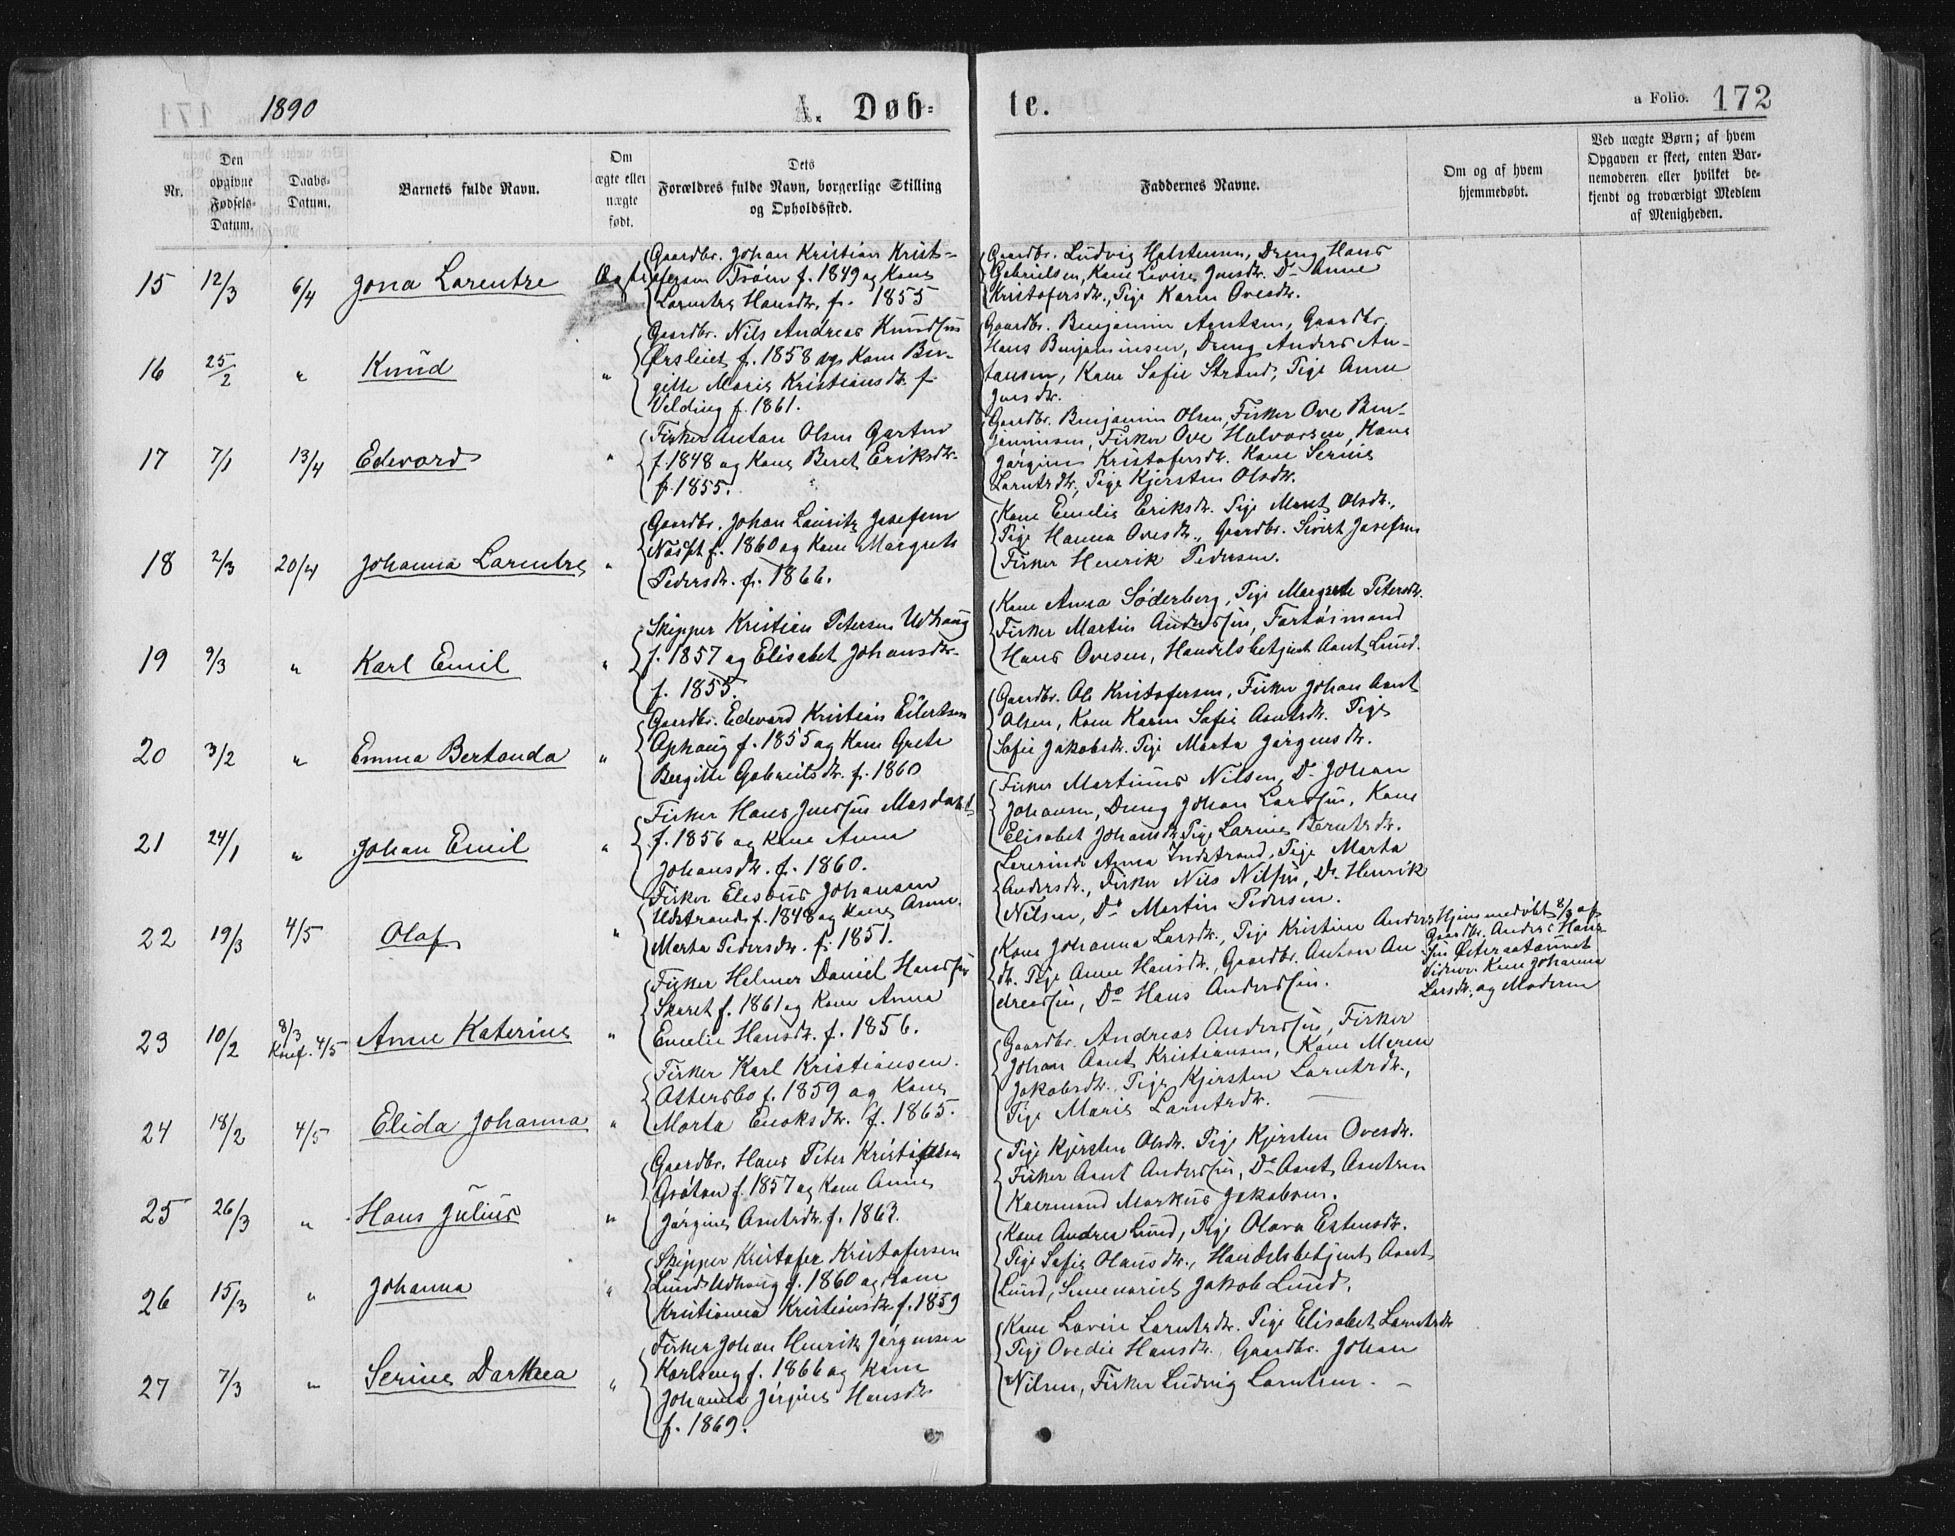 1890
A. Døb-
te.
a Folio. 172
Nr.
Den opgivne Fødsels-Datum.
Daabs-Datum.
Barnets fulde Navn.
Om ægte eller uægte født.
Dets Forældres fulde Navn, borgerlige Stilling og Opholdssted.
Faddernes Navne.
Om og af hvem hjemmedøbt.
Ved uægte Børn; af hvem Opgaven er skeet, enten Barnemoderen eller hvilket bekjendt og troværdigt Medlem af Menigheden.
15 12/3 6/4 Jona Larentze Ægte
Gaardbr. Johan Kristian Krist-
ofersen Trøen f. 1849 og Kone
Hansdtr. f. 1855
Gaardbr. Ludvig Halstensen, Dreng Hans
Gabrielsen, Kone Lovise Jensdtr. Do Anne
Kristofersdtr., Pige Karen Ovesdtr.
16 25/2 " Knud "
Gaardbr. Nils Andreas Knudsen
Ørsleiet f. 1858 og Kone Bir-
gitte Marie Kristiansdtr. f.
Velding f. 1861.
Gaardbr. Benjamin Arntsen, Gaardbr.
Hans Benjaminsen, Dreng Anders An-
tonsen, Kone Sofie Strand, Pige Anne
Jensdtr.
17 7/1 13/4 Edevard "
Fisker Anton Olsen Garten
f. 1848 og Kone Beret Eriksdtr.
f. 1855.
Gaardbr. Benjamin Olsen, Fisker Ove Ben-
jaminsen, Fisker Ove Halvorsen, Kone
Jørgine Kristofersdtr. Kone Serine
Larntsdtr., Pige Kjersten Olsdtr.
18 2/3 20/4 Johanna Larentze "
Gaardbr. Johan Lauritz Josefsen
f. 1860 og Kone Margrete
Pedersdtr. f. 1866.
Kone Emelie Eriksdtr. Pige Marit Olsdtr.,
Pige Hanna Ovesdtr., Gaardbr. Sivert Josefsen
Fisker Henrik Pedersen.
19 9/3 " Karl Emil "
Skipper Kristian Petersen Udhaug
f. 1857 og Elisabet Johansdtr.
f. 1855.
Kone Anna Söderberg, Pige Margrete Petersdtr.
Fisker Martin Anderssen, Fartøimand
Hans Ovesen, Handelsbetjent Arnt Lund.
20 3/2 " Emma Bertonda "
Gaardbr. Edevard Kristian Eilertsen
Ophaug f. 1855 og Kone Grete
Bergitte Gabrielsdtr. f. 1860
Gaardbr. Ole Kristofersen, Fisker Johan Arnt
Olsen, Kone Karen Sofie Arntsdtr. Pige
Sofie Jakobsdtr. Pige Marta Jørgensdtr.
21 24/1 " Johan Emil "
Fisker Hans Jenssen
f. 1856 og Kone Anna
Johansdtr. f. 1860.
Fisker Martinus Nilsen, Do Johan
Johansen, Dreng Johan Larssen, Kone
Elisabet Johansdtr. Pige Larine Berntsdtr.
22 19/3 4/5 Olaf "
Fisker Elesæus Johansen
Udstrand f. 1848 og Kone Anne
Marta Pedersdtr. f. 1851.
Lærerinde Anna Indstrand, Pige Marta
Andersdtr., Fisker Nils Nilssen, Do. Henrik
Nilsen, Do Martin Pedersen.
23 10/2 8/3 Konf. 4/5 Anne Katerine "
Fisker Helmer Daniel Hanssen
Skaret f. 1861 og Kone Anna
Emelie Hansdtr. f. 1856.
Kone Johanna Larsdtr., Pige Kristine Anders-
dtr. Pige Anne Hansdtr., Gaardbr. Anton An-
dreassen, Do Hans Anderssen.
Hjemmedøbt 8/3 af
Gaardbr. Anders Hans-
sen
Vidner. Kone Johanna
Larsdtr. og Moderen
24 18/2 4/5 Elida Johanna "
Fisker Karl Kristiansen
Ottersbo f. 1859 og Kone
Marta Enoksdtr. f. 1865.
Gaardbr. Andreas Anderssen, Fisker
Johan Arnt Kristiansen, Kone Meren
Jakobsdtr., Pige Kjersten Larntsdtr.,
Pige Marie Larntsdtr.
25 26/3 " Hans Julius "
Gaardbr. Hans Peter Kristofersen
Grøtan f. 1857 og Kone Anne
Jørgine Arntsdtr. f. 1863.
Pige Kjersten Olsdtr. Pige Kjersten Ovesdtr.
Fisker Arnt Anderssen, Do Arnt Arntsen
Kaarmand Markus Jakobsen.
26 15/3 " Johanna "
Skipper Kristofer Kristofersen
Lund Udhaug f. 1860 og Kone
Kristianna Kristiansdtr. f. 1859
Kone Andrea Lund, Pige Olava Estensdtr.
Pige Sofie Olausdtr., Handelsbetjent Arnt
Lund, Seminarist Jakob Lund.
27 7/3 " Serine Darthea "
Fisker Johan Henrik Jørgensen
Karlseng f. 1866 og Kone
Johanna Jørgine Hansdtr.
f. 1869.
Kone Lovise Larntsdtr. Pige Elisabet Larntsdtr.
Pige Ovedie Hansdtr., Gaardbr. Johan
Nilsen, Fisker Ludvig Larntsen.